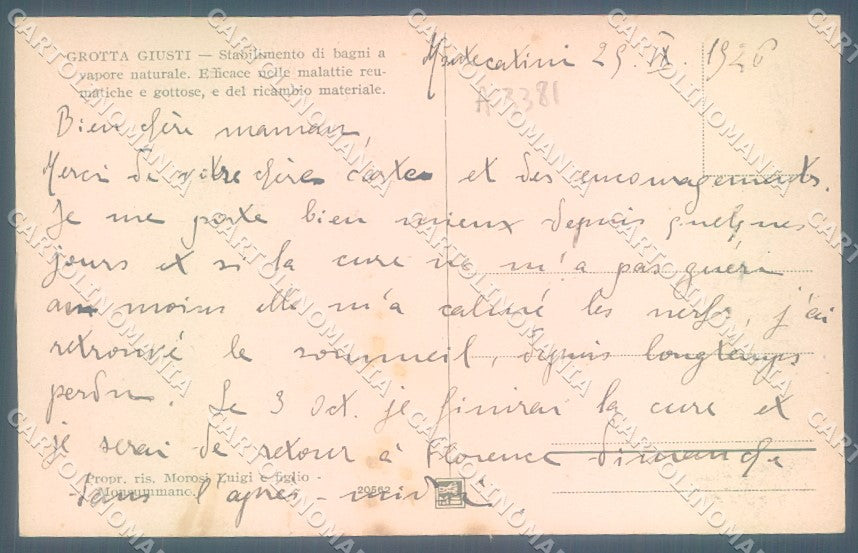 GROTTA GIUSTI — Stabilimento di bagni a
vapore naturale. Efficace nelle malattie reu-
matiche e gottose, e del ricambio materiale.
Montecatini 29. IX. 1926
N 3381
Bien chère maman,
Merci de votre chère carte et des encouragements.
Je me porte bien mieux depuis quelques
jours et si la cure ne m'a pas guéri
au moins elle m'a calmé les nerfs, j'ai
retrouvé le sommeil, depuis longtemps
perdu. Le 3 Oct. je finirai la cure et
je serai de retour à Florence dimanche
dans l'après-midi.
Propr. ris. Morosi Luigi e figlio -
Monsummano.
20562
CARTOLINOMANIA